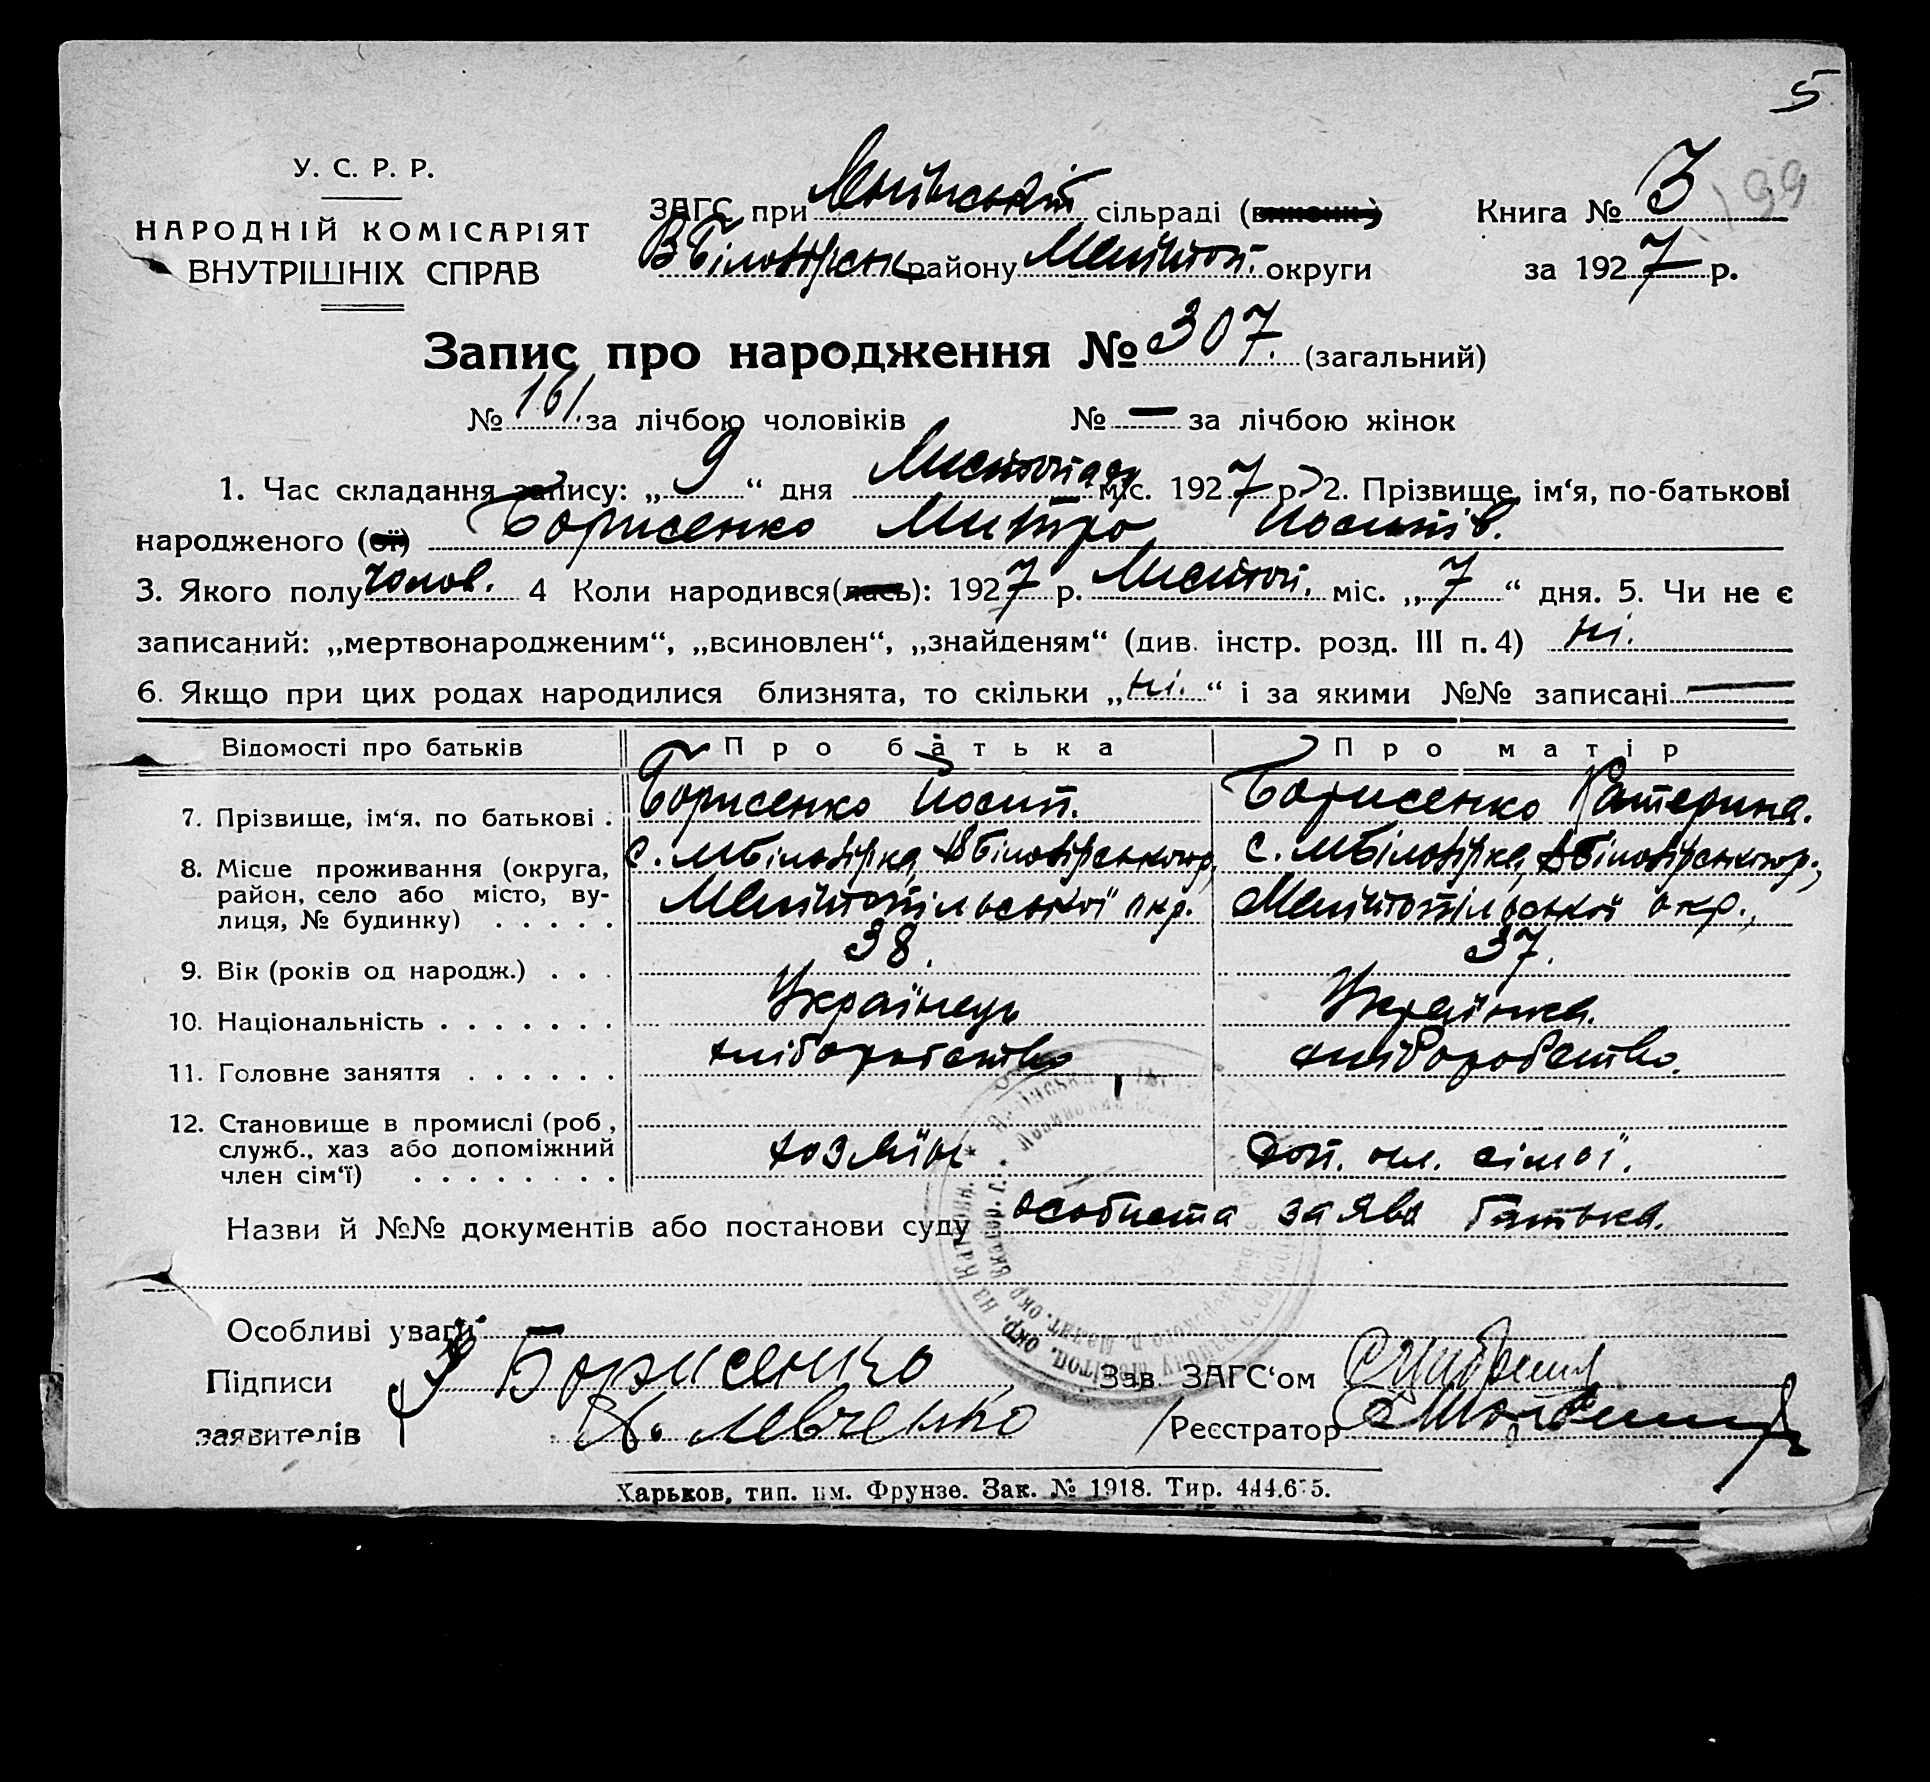 5
У. С. Р. Р.
НАРОДНІЙ КОМІСАРІЯТ
ВНУТРІШНІХ СПРАВ
ЗАГС при сільраді
В Білозірськ району Мелітоп. округи
Книга № 3 199
за 1927 р.
Запис про народження № 307. (загальний)
№ 161. за лічбою чоловіків № — за лічбою жінок
1. Час складання запису: „ 9 “ дня Листопаду міс. 1927 р. 2. Прізвище, ім‘я, по-батькові
народженого (ої) Борисенко Митро Иосипів.
3. Якого полу чолов. 4 Коли народився(лась): 1927 р. Листоп. міс. „ 7 “ дня. 5. Чи не є
записаний: „мертвонародженим“, „всиновлен“, „знайденям“ (див. інстр. розд. III п. 4) ні.
6. Якщо при цих родах народилися близнята, то скільки „ ні. “ і за якими №№ записані —
Відомості про батьків Про батька Про матір
7. Прізвище, ім‘я, по батькові . Борисенко Йосип. Борисенко Катерина.
8. Місце проживання (округа, район, село або місто, вулиця, № будинку) . . . . . с. МБілозірка, ВБілозірського р., Мелітопільської окр. с. МБілозірка, ВБілозірського р., Мелітопільської окр.,
9. Вік (років од народж.) . . . 38. 37.
10. Національність . . . . . . . Українець Українка.
11. Головне заняття . . . . . . хліборобство хліборобство.
12. Становище в промислі (роб, служб., хаз або допоміжний член сім‘ї) . . . . . . . . хозяїн доп. чл. сімої.
Назви й №№ документів або постанови суду особиста заява батька.
Особливі уваги —
Підписи Й Борисенко Зав ЗАГС‘ом
заявителів Левченко Реєстратор
Харьков, тип. им. Фрунзе. Зак. № 1918. Тир.